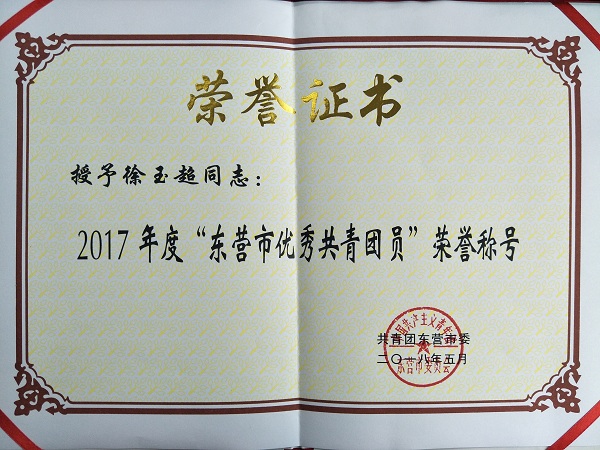 荣誉证书
授予徐玉超同志：
2017年度“东营市优秀共青团员”荣誉称号
共青团东营市委
二〇一八年五月